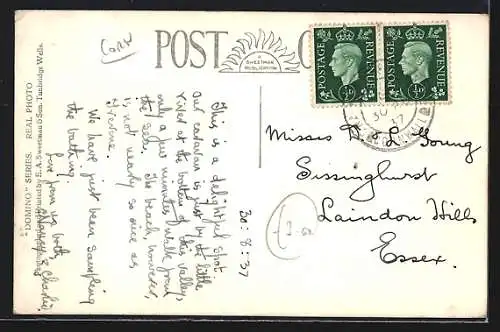 Corn
POST
C
SWEETMAN
PUBLICATION
POSTAGE
REVENUE
½D
POSTAGE
REVENUE
½D
30
17
"DOMINO" SERIES. REAL PHOTO
by E. A. Sweetman & Son, Tunbridge Wells.
30:8:37
This is a delightful spot.
Our caravan is just by the little
river at the bottom of this valley,
only a few minutes walk from
the sea. The beach, however,
is not nearly so nice as
We have just been sampling
the bathing.
Love from us both,
& Charlie
Misses D & L Young
Sissinghurst
Laindon Hills
Essex.